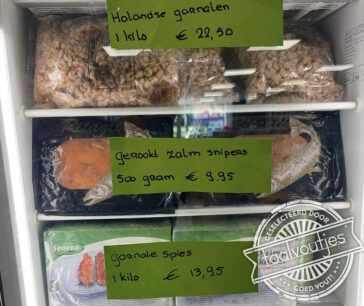 Hollandse garnalen
1 kilo € 22,50
gerookt zalm snipers
500 gram € 9,95
Seacon
garnale spies
1 kilo € 13,95
GESELECTEERD DOOR
GOED YOUT!